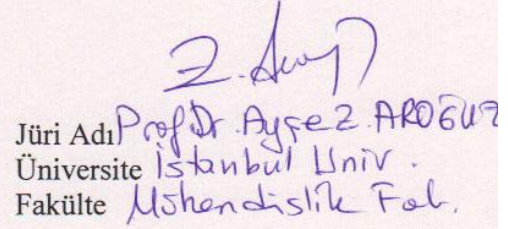 Jüri Adı Prof Dr. Ayşe Z. AROĞUZ
Üniversite İstanbul Üniv.
Fakülte Mühendislik Fak.